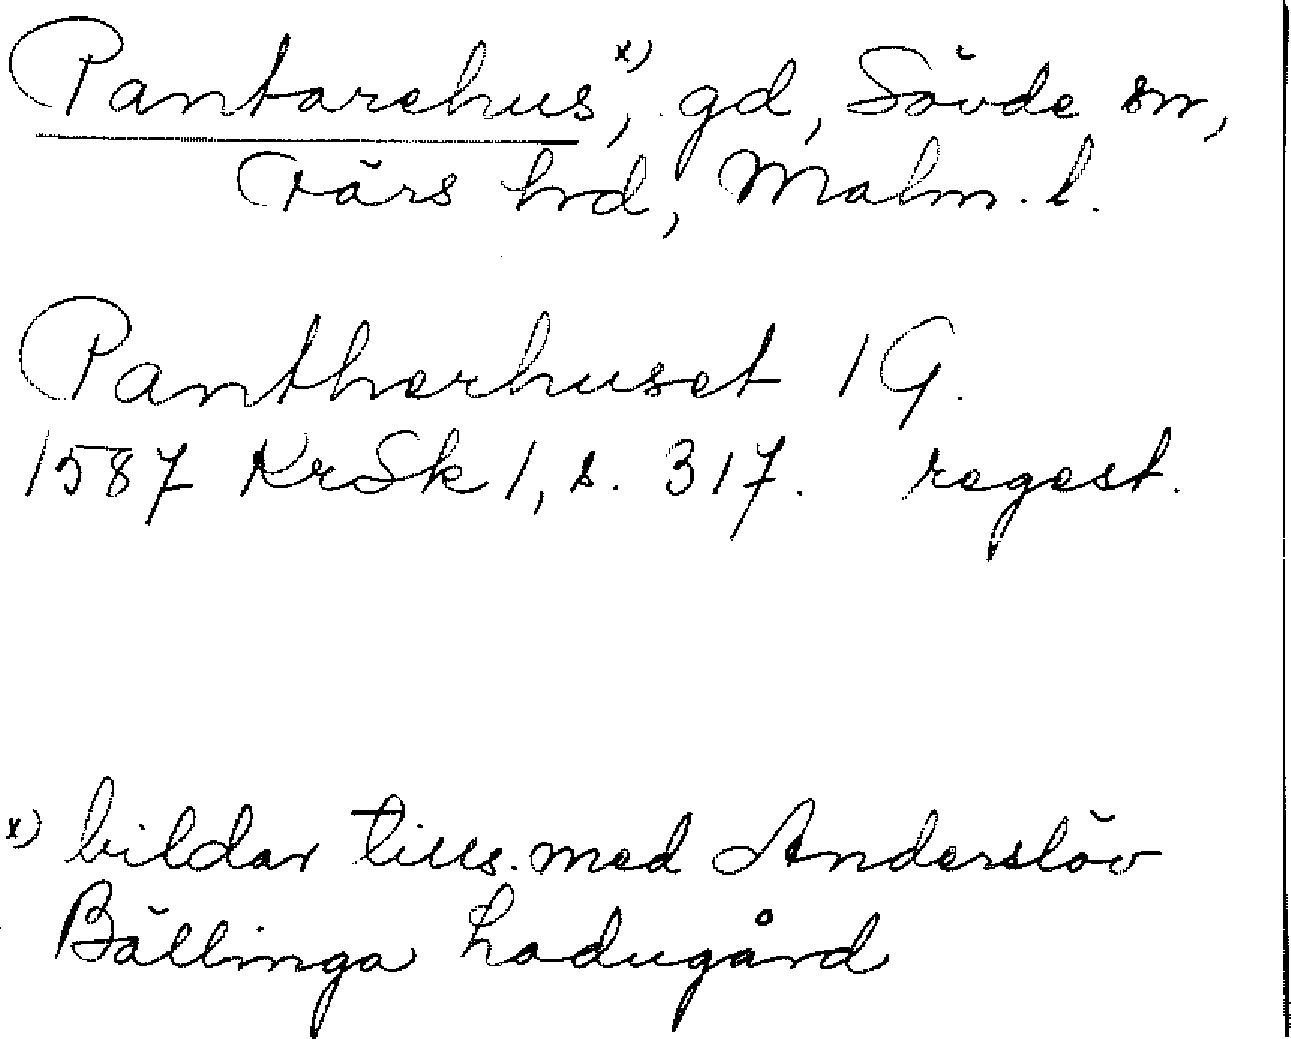 Pantarehus x), gd, Sövde sn,
Färs hd, Malm. l.
Pantherhuset 1 G.
1587 KrSk 1, s. 317. regest.
x) bildar tills. med Anderslöv
Bällinga Ladugård